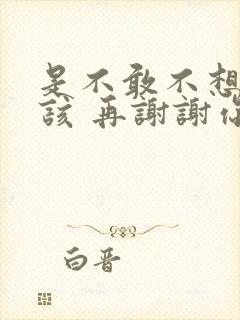 是不敢不想
該 再謝謝你
白晋